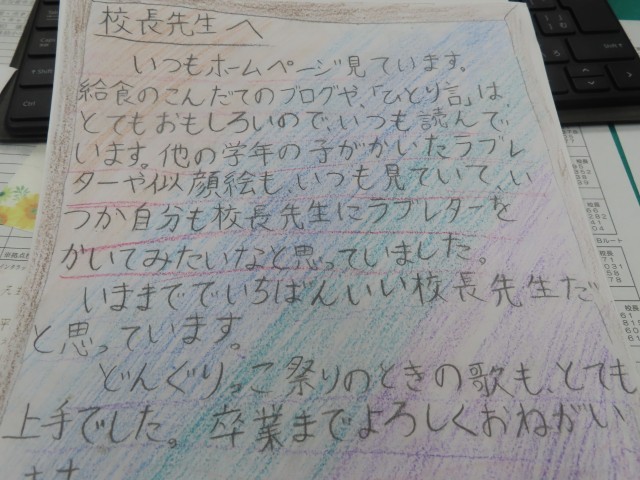 校長先生へ
いつもホームページ見ています。
給食のこんだてのブログや、「ひとり言」は、
とてもおもしろいので、いつも読んで
います。他の学年の子がかいたラブレ
ターや似顔絵も いつも見ていて、い
つか自分も校長先生にラブレターを
かいてみたいなと思っていました。
いままででいちばんいい校長先生だ
と思っています。
どんぐりっこ祭りのときの歌も、とても
上手でした。卒業までよろしくおねがい